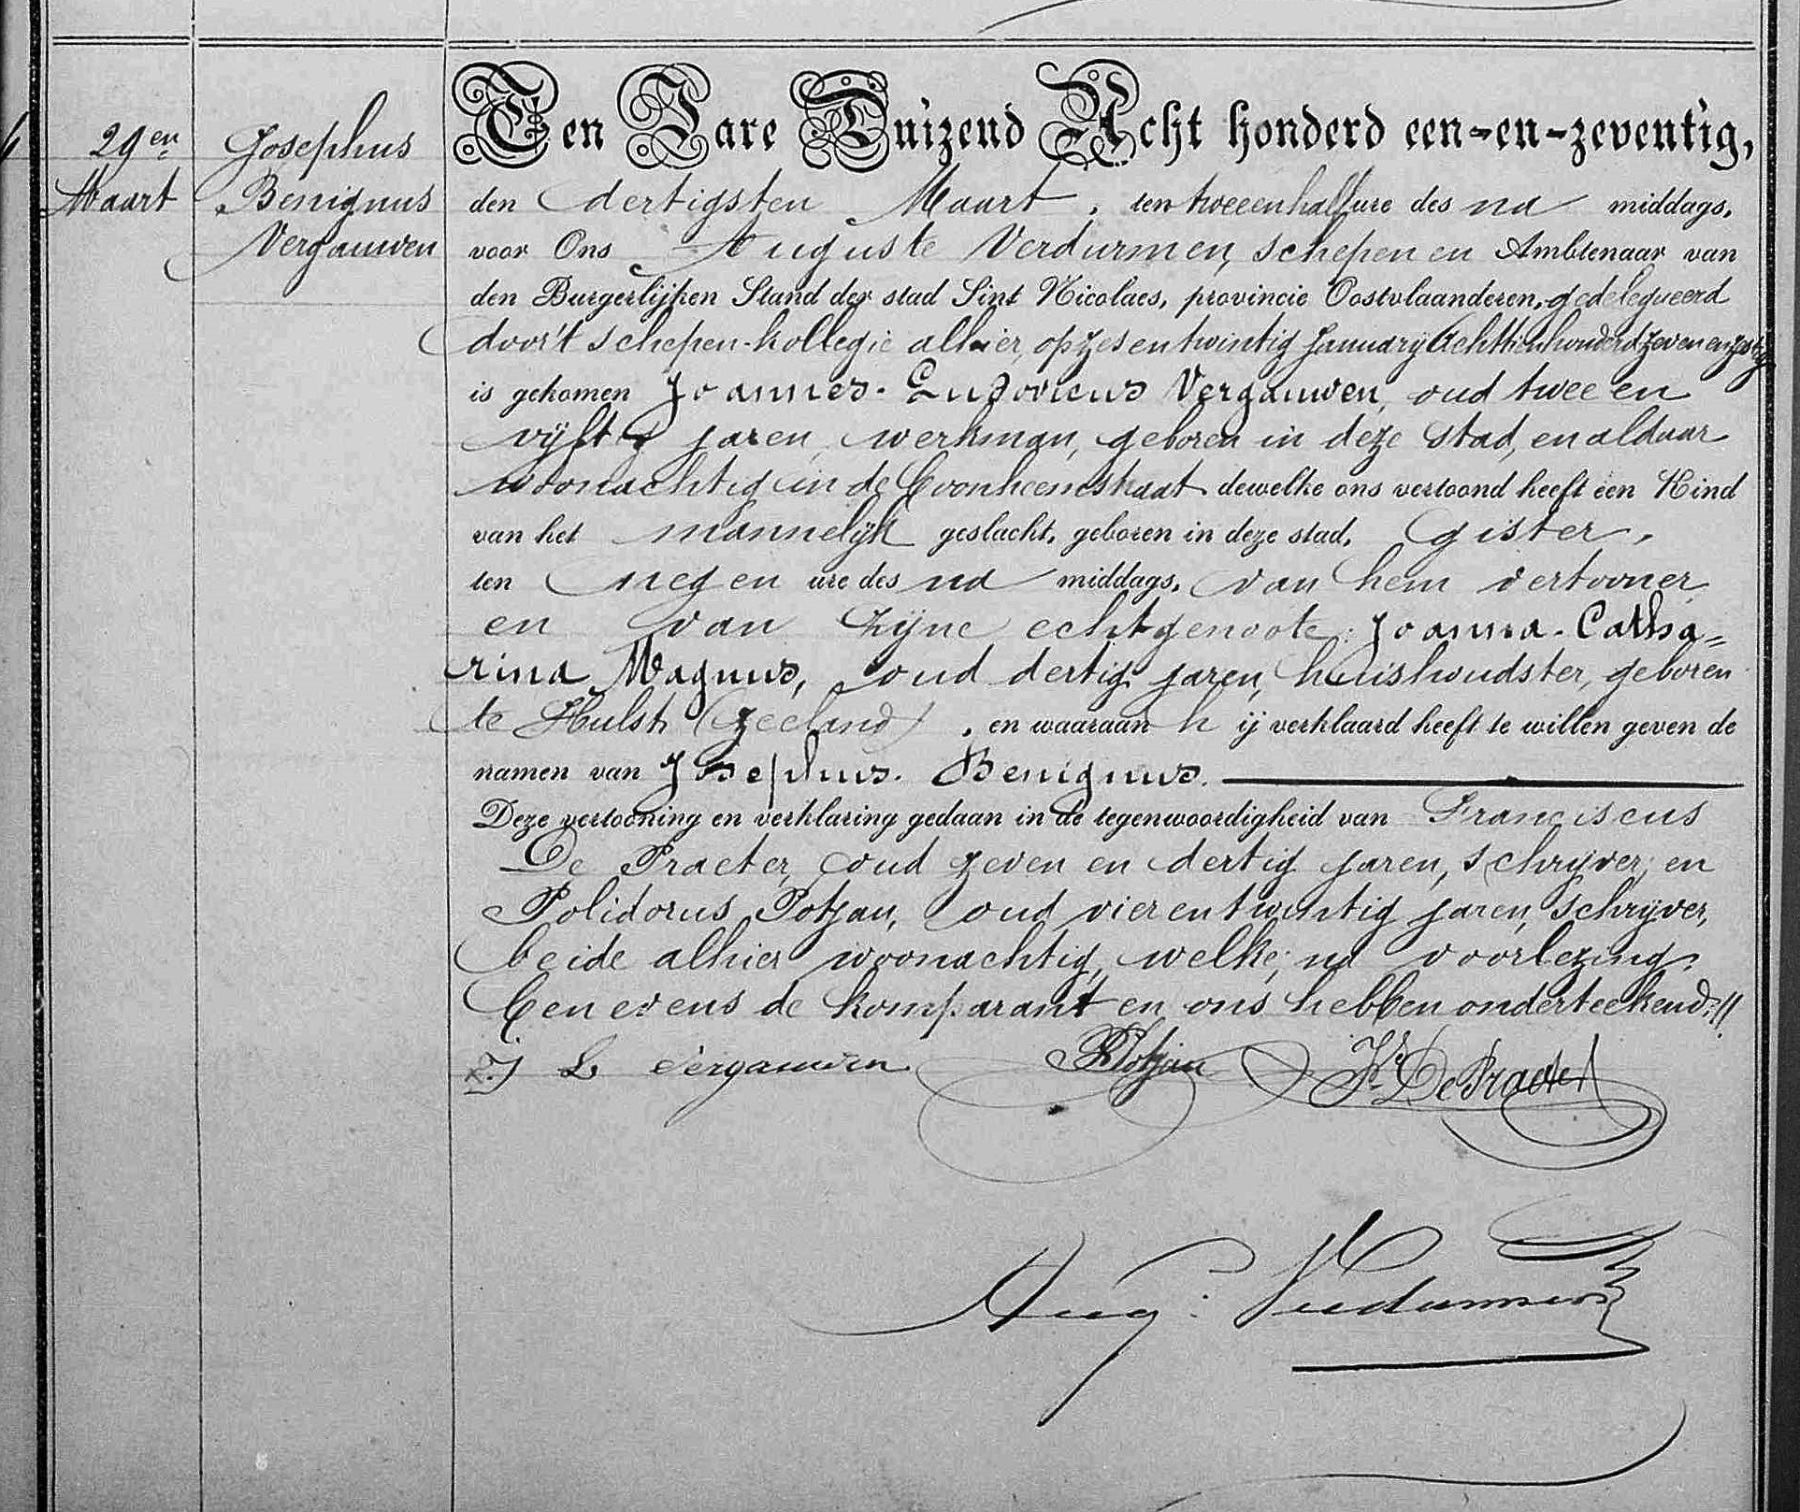 29en
Maart
Josephus
Benignus
Vergauwen
Ten Jare Duizend Acht honderd een-en-zeventig,
den dertigsten Maart, ten tweeenhalf ure des na middags,
voor Ons Auguste Verdurmen, schepen en Ambtenaar van
den Burgerlijken Stand der stad Sint Nicolaes, provincie Oostvlaanderen, gedelegueerd
door 't schepen-kollegie alhier, op zesentwintig January Achttienhonderd zevenenzestig
is gekomen Joannes-Ludovicus Vergauwen, oud twee en
vijftig jaren, werkman, geboren in deze stad, en aldaar
woonachtig in de dewelke ons vertoond heeft een Kind
van het mannelijk geslacht, geboren in deze stad, gister,
ten negen ure des na middags, van hem vertooner
en van zijne echtgenoote: Joanna-Catha=
rina Magnus, oud dertig jaren, huishoudster, geboren
te Hulst (Zeeland), en waaraan h ij verklaard heeft te willen geven de
namen van Josephus-Benignus.
Deze vertooning en verklaring gedaan in de tegenwoordigheid van Franciscus
De Praeter, oud zeven en dertig jaren, schrijver, en
Polidorus Potjau, oud vierentwintig jaren, schrijver,
beide alhier woonachtig, welke, na voorlezing,
benevens de komparant en ons hebben onderteekend.//
J L vergauwen
P Potjau
Fs De Praeter
Aug: Verdurmen